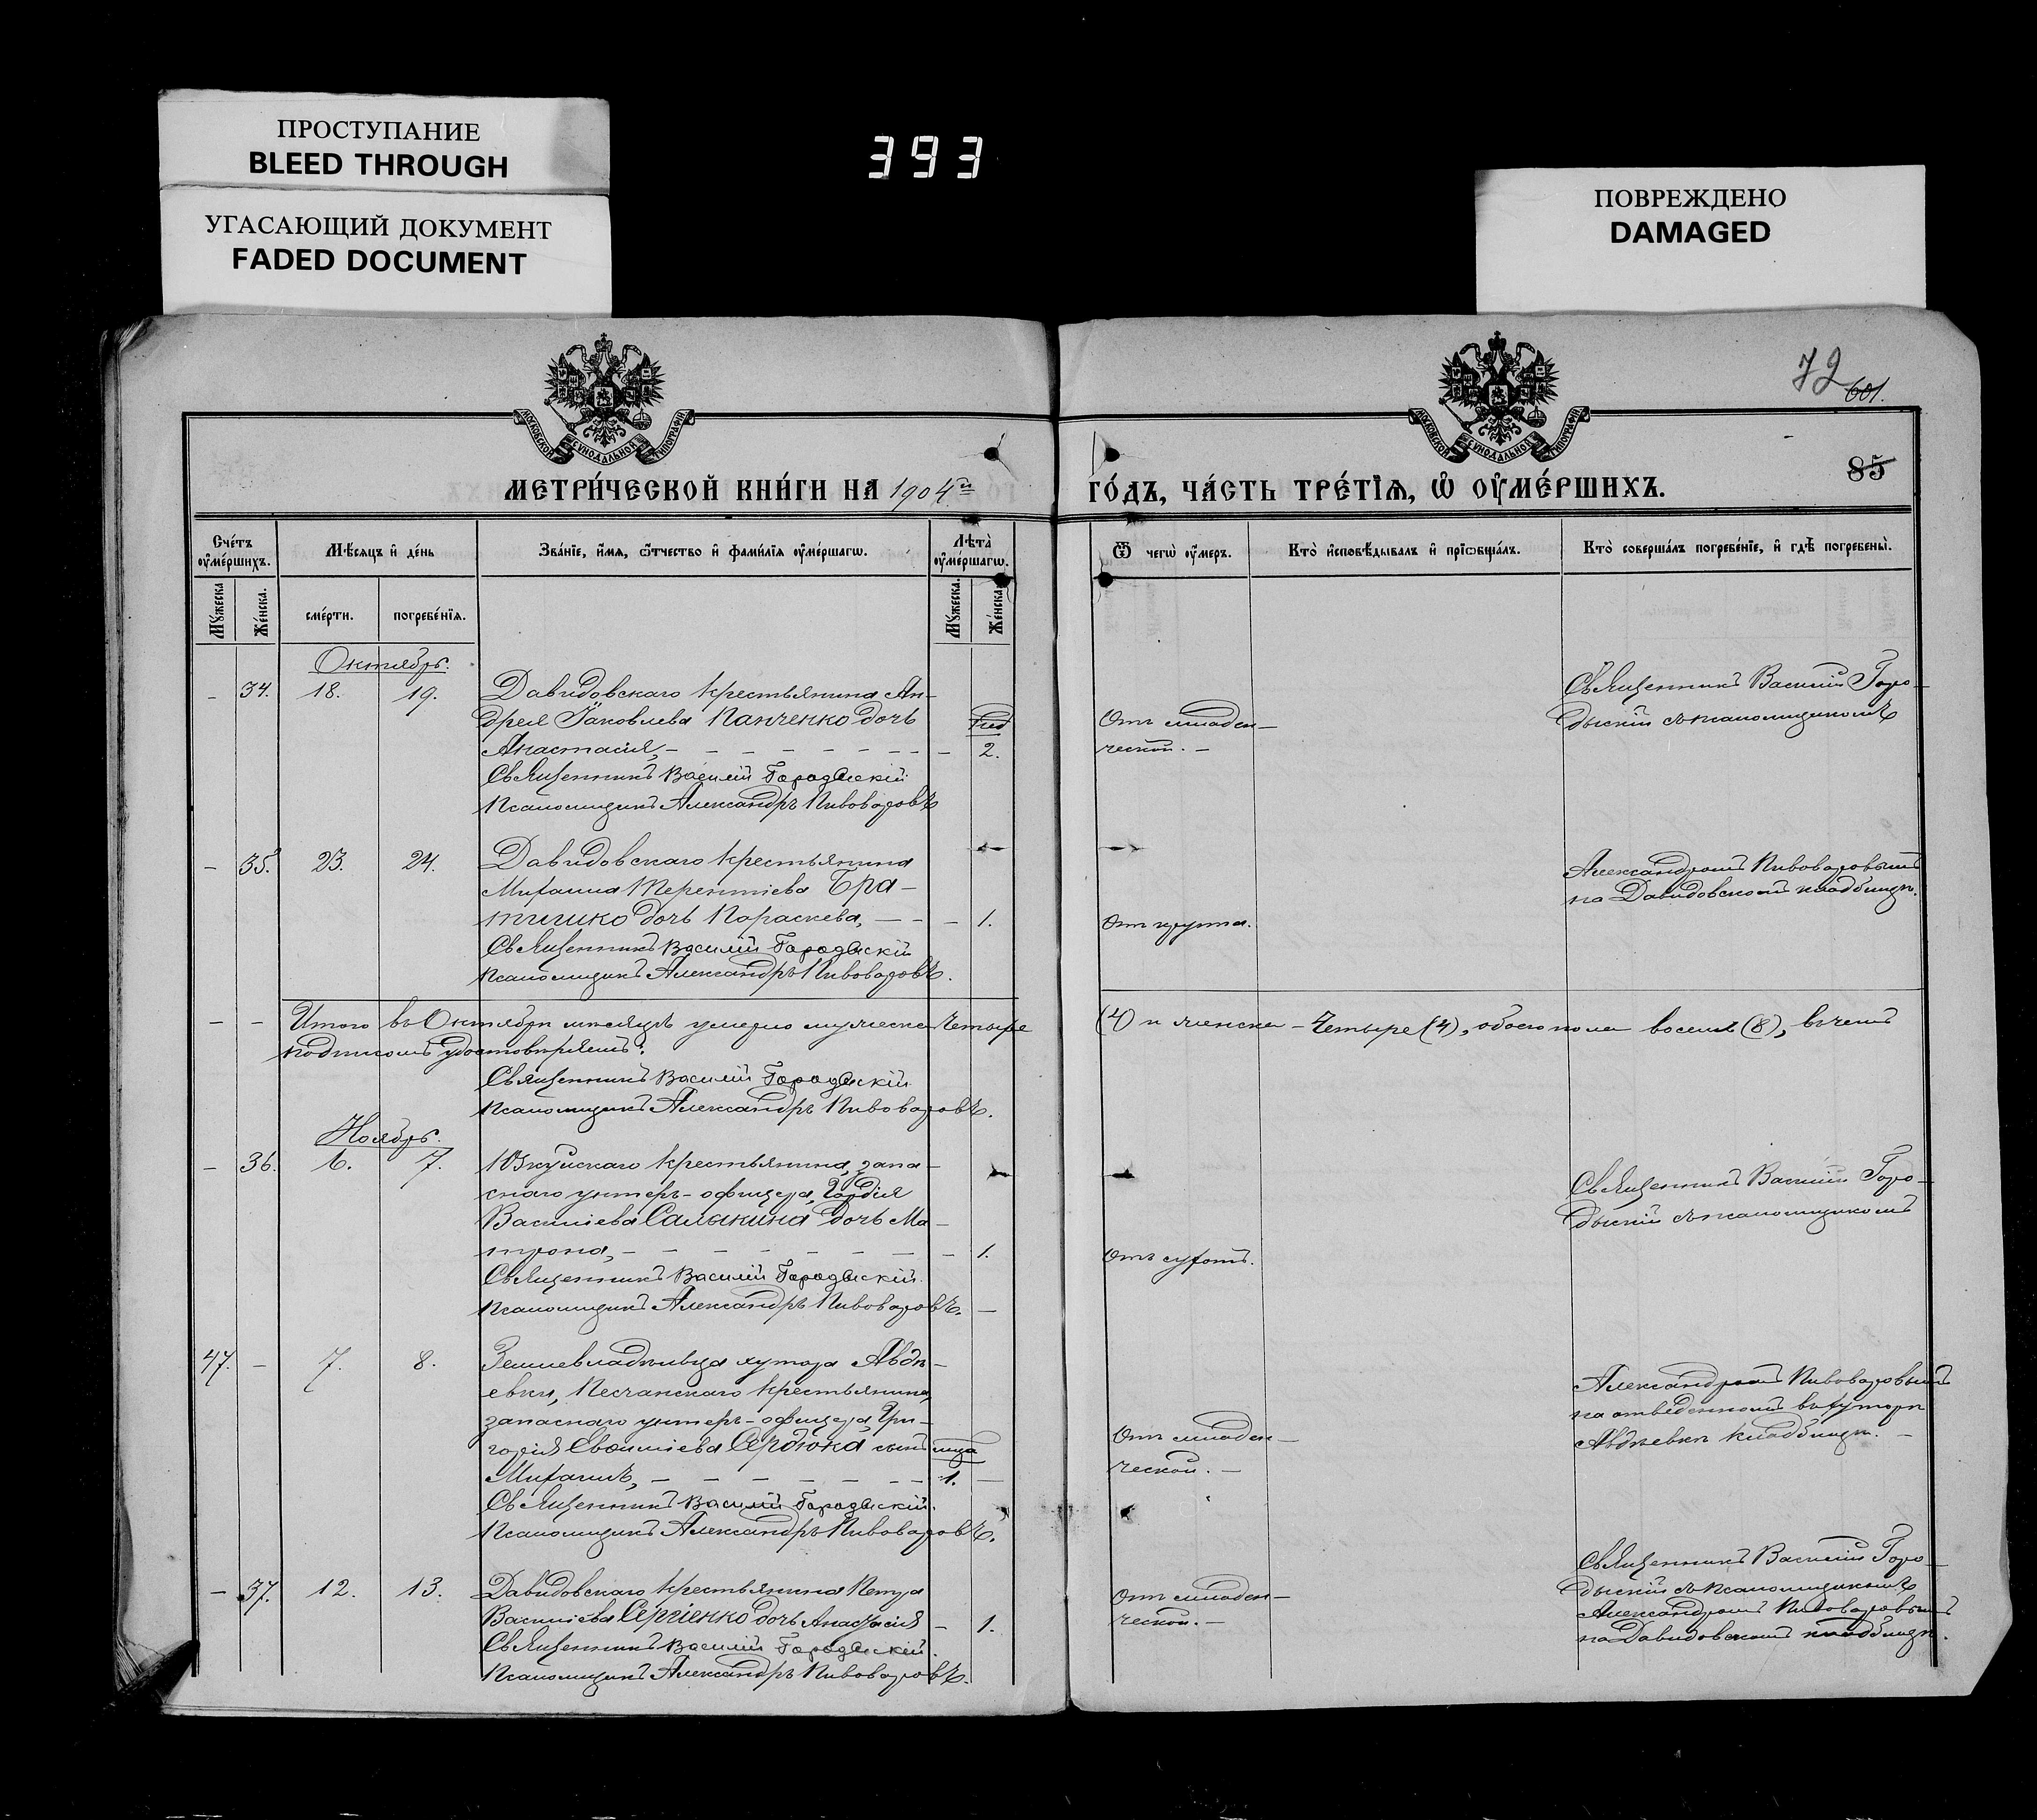 ПРОСТУПАНИЕ
BLEED THROUGH
УГАСАЮЩИЙ ДОКУМЕНТ
FADED DOCUMENT
393
ПОВРЕЖДЕНО
DAMAGED
72
601.
85
МОСКОВСКОЙ СѴНОДАЛЬНОЙ ТИПОГРАФІИ
МОСКОВСКОЙ СѴНОДАЛЬНОЙ ТИПОГРАФІИ
МЕТРИ́ЧЕСКОЙ КНИ́ГИ НА 1904й
ГО́ДЪ, ЧА́СТЬ ТРЕ́ТІѦ, Ѡ҆ ОУ҆МЕ́РШИХЪ.
Сче́тъ оу҆ме́ршихъ.
Мѣ́сѧцъ и҆ де́нь
Зва́нїе, и҆́мѧ, ѻ҆́тчество и҆ фами́лїѧ оу҆ме́ршагѡ.
Лѣ́та оу҆ме́ршагѡ.
Ѿ чегѡ̀ оу҆́меръ.
Кто̀ и҆сповѣ́дывалъ и҆ прїѡбща́лъ.
Кто̀ соверша́лъ погребе́нїе, и҆ гдѣ̀ погребены̀.
Мꙋ́жеска
Же́нска.
сме́рти.
погребе́нїѧ.
Мꙋ́жеска.
Же́нска.
Октябрь.
- 34. 18. 19. Давидовскаго крестьянина Ан-
дрея Іаковлева Панченко дочь
Анастасія, - - - - - - - - 2.
Священникъ Василій Городыскій
Псаломщикъ Александръ Пивоваровъ
Отъ младен-
ческой. -
Священникъ Василій Горо-
дыскій съ псаломщикомъ
- 35. 23. 24. Давидовскаго крестьянина
Михаила Терентіева Бра-
тишко дочь Параскева, - - - 1.
Священникъ Василій Городыскій
Псаломщикъ Александръ Пивоваровъ.
Отъ крупа.
Александромъ Пивоваровымъ
на Давидовскомъ кладбищѣ.
- - Итого въ Октябрѣ мѣсяцѣ умерло мужеска Четыре
(4) и женска - Четыре (4), обоего пола восемь (8), въ чемъ
подписомъ удостовѣряемъ:
Священникъ Василій Городыскій
Псаломщикъ Александръ Пивоваровъ.
Ноябрь.
- 36. 6. 7. крестьянина, запа-
снаго унтеръ-офицера, Гордія
Василіева Салыкина дочь Ма-
трона, - - - - - - - - 1.
Священникъ Василій Городыскій
Псаломщикъ Александръ Пивоваровъ. -
Отъ сухотъ.
Священникъ Василій Горо-
дыскій съ псаломщикомъ
47. - 7. 8. Землевладѣльца хутора Авдѣ-
евки, Песчанскаго крестьянина,
запаснаго унтеръ-офицера, Гри-
горія Сердюка сынъ мца
Михаилъ, - - - - - - - - 1. -
Священникъ Василій Городыскій.
Псаломщикъ Александръ Пивоваровъ.
Отъ младен-
ческой. -
Александромъ Пивоваровымъ
на отведенномъ въ хуторѣ
Авдѣевкѣ кладбищѣ. -
- 37. 12. 13. Давидовскаго крестьянина Петра
Василіева Сергіенко дочь Анастасія - 1.
Священникъ Василій Городыскій.
Псаломщикъ Александръ Пивоваровъ.
Отъ младен-
ческой. -
Священникъ Василій Горо-
дыскій съ псаломщикомъ
Александромъ Пивоваровымъ
на Давидовскомъ кладбищѣ.